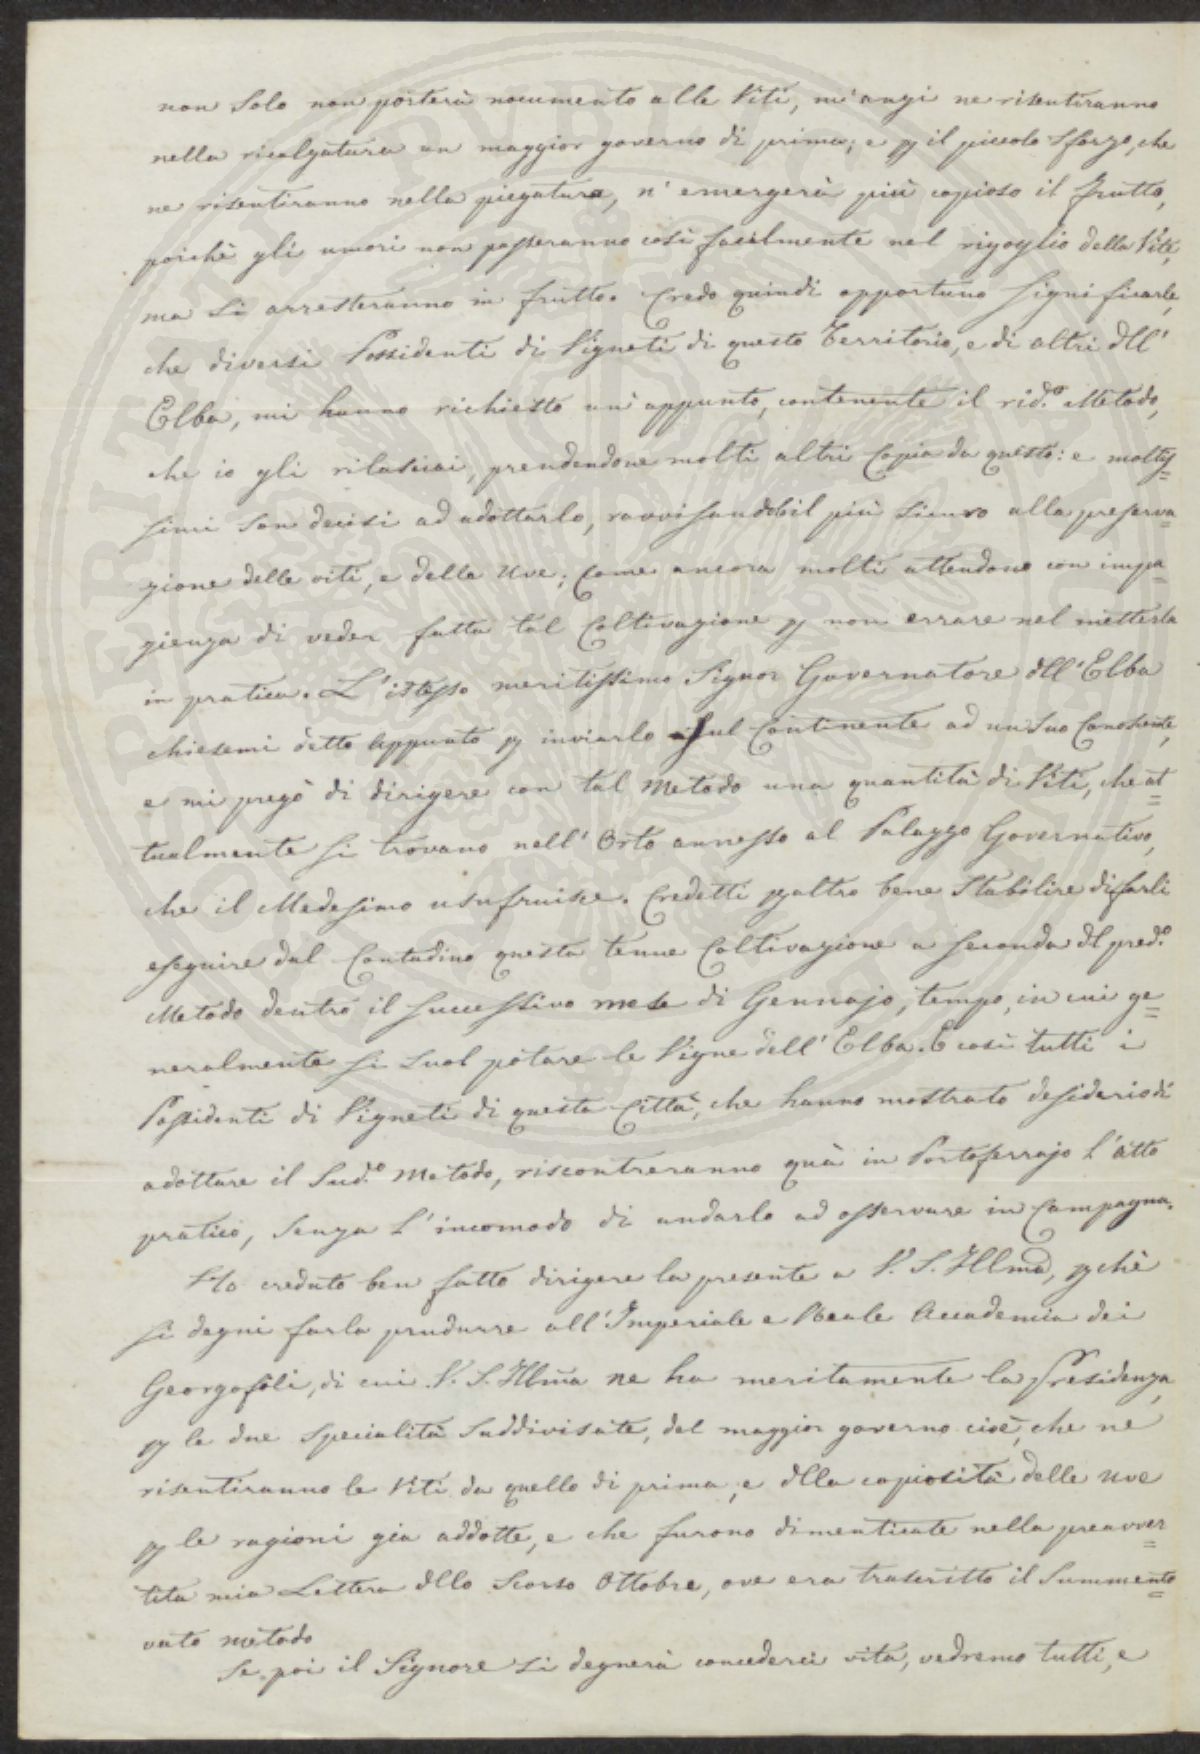 non solo non porterà nocumento alle Viti, m'anzi ne risentiranno
nella ricalzatura un maggior governo di prima; e p il piccolo sforzo, che
ne risentiranno nella piegatura, n'emergerà più copioso il frutto,
poichè gli umori non passeranno così facilmente nel rigoglio della Vite,
ma si arresteranno in frutto. Credo quindi opportuno significarle,
che diversi Possidenti di Vigneti di questo Territorio, e di altri dll'
Elba, mi hanno richiesto un'appunto, contenente il rid.o Metodo,
che io gli rilasciai, prendendone molti altri Copia da questo: e moltis=
simi son decisi ad adottarlo, ravvisandolo il più sicuro alla preserva=
zione delle viti, e delle Uve; Come ancora molti attendono con impa=
zienza di veder fatta tal Coltivazione p non errare nel metterla
in pratica. L'istesso meritissimo Signor Governatore dll'Elba
chiesemi detto Appunto p inviarlo sul Continente ad un suo Conoscente,
e mi pregò di dirigere con tal Metodo una quantità di Viti, che at=
tualmente si trovano nell'Orto annesso al Palazzo Governativo,
che il Medesimo usufruisce. Credetti paltro bene stabilire di farli
eseguire dal Contadino questa tenue Coltivazione a seconda dl pred.o
Metodo dentro il successivo mese di Gennajo, tempo, in cui ge=
neralmente si suol potare le Vigne dell'Elba. E così tutti i
Possidenti di Vigneti di questa Città, che hanno mostrato desiderio di
adottare il Sud.o Metodo, riscontreranno quà in Portoferrajo l'atto
pratico, senza l'incomodo di andarlo ad osservare in Campagna.
Ho creduto ben fatto dirigere la presente a V. S. Illma, pchè
si degni farla produrre all'Imperiale e Reale Accademia dei
Georgofili, di cui V. S. Illma ne ha meritamente la Presidenza,
p le due specialità suddivisate, del maggior governo cioè, che ne
risentiranno le Viti da quello di prima, e dlla copiosità delle Uve
p le ragioni già addotte, e che furono dimenticate nella preavver=
tita mia Lettera dllo scorso Ottobre, ove era trascritto il summento=
vato metodo
Se poi il Signore si degnerà concederci vita, vedremo tutti, e